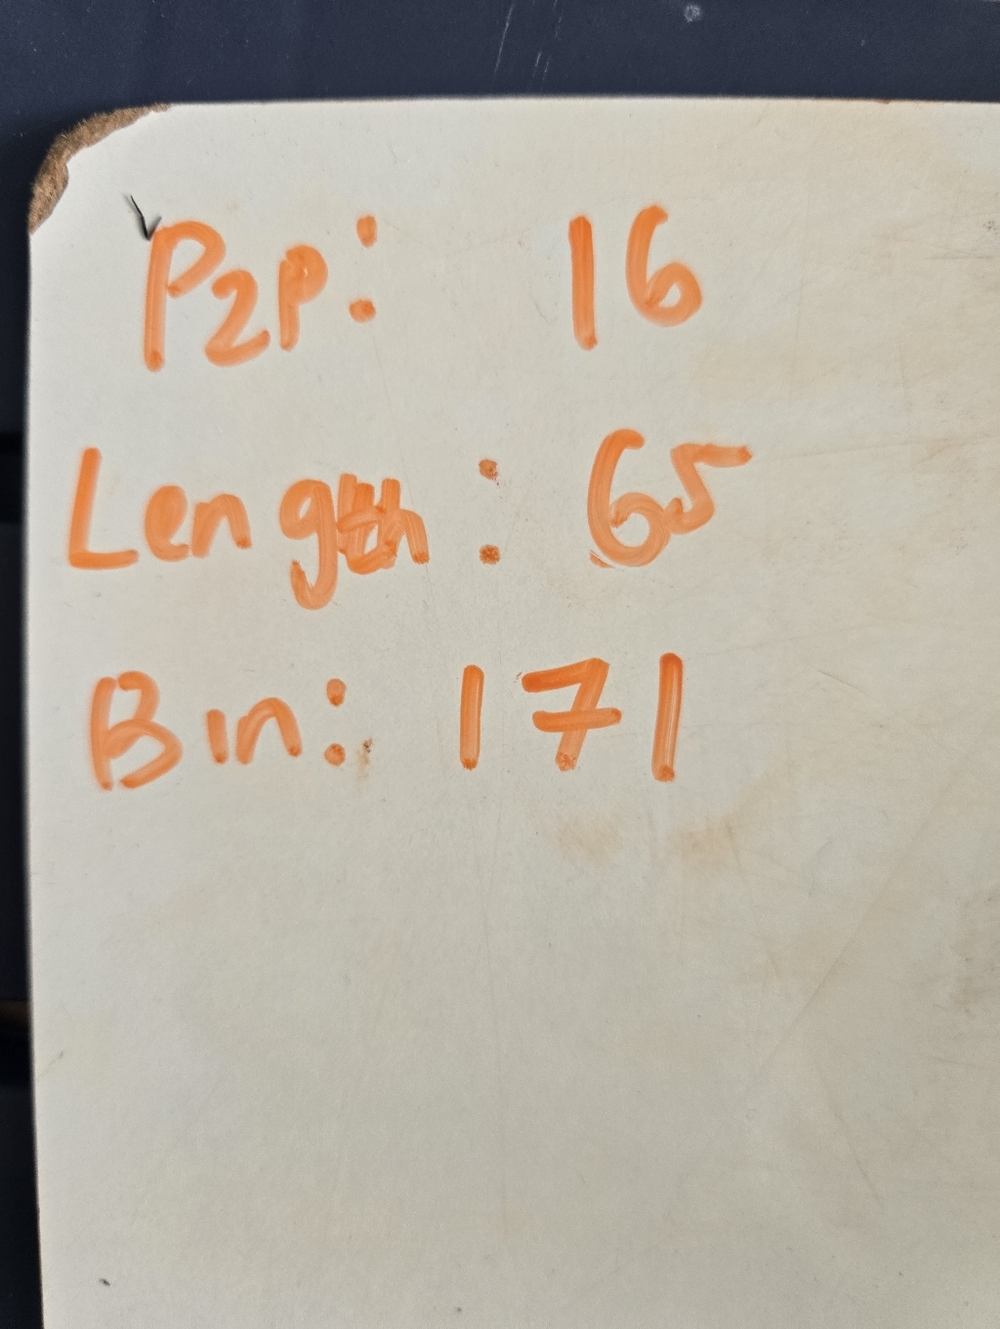 P2p: 16
Length: 65
Bin: 171